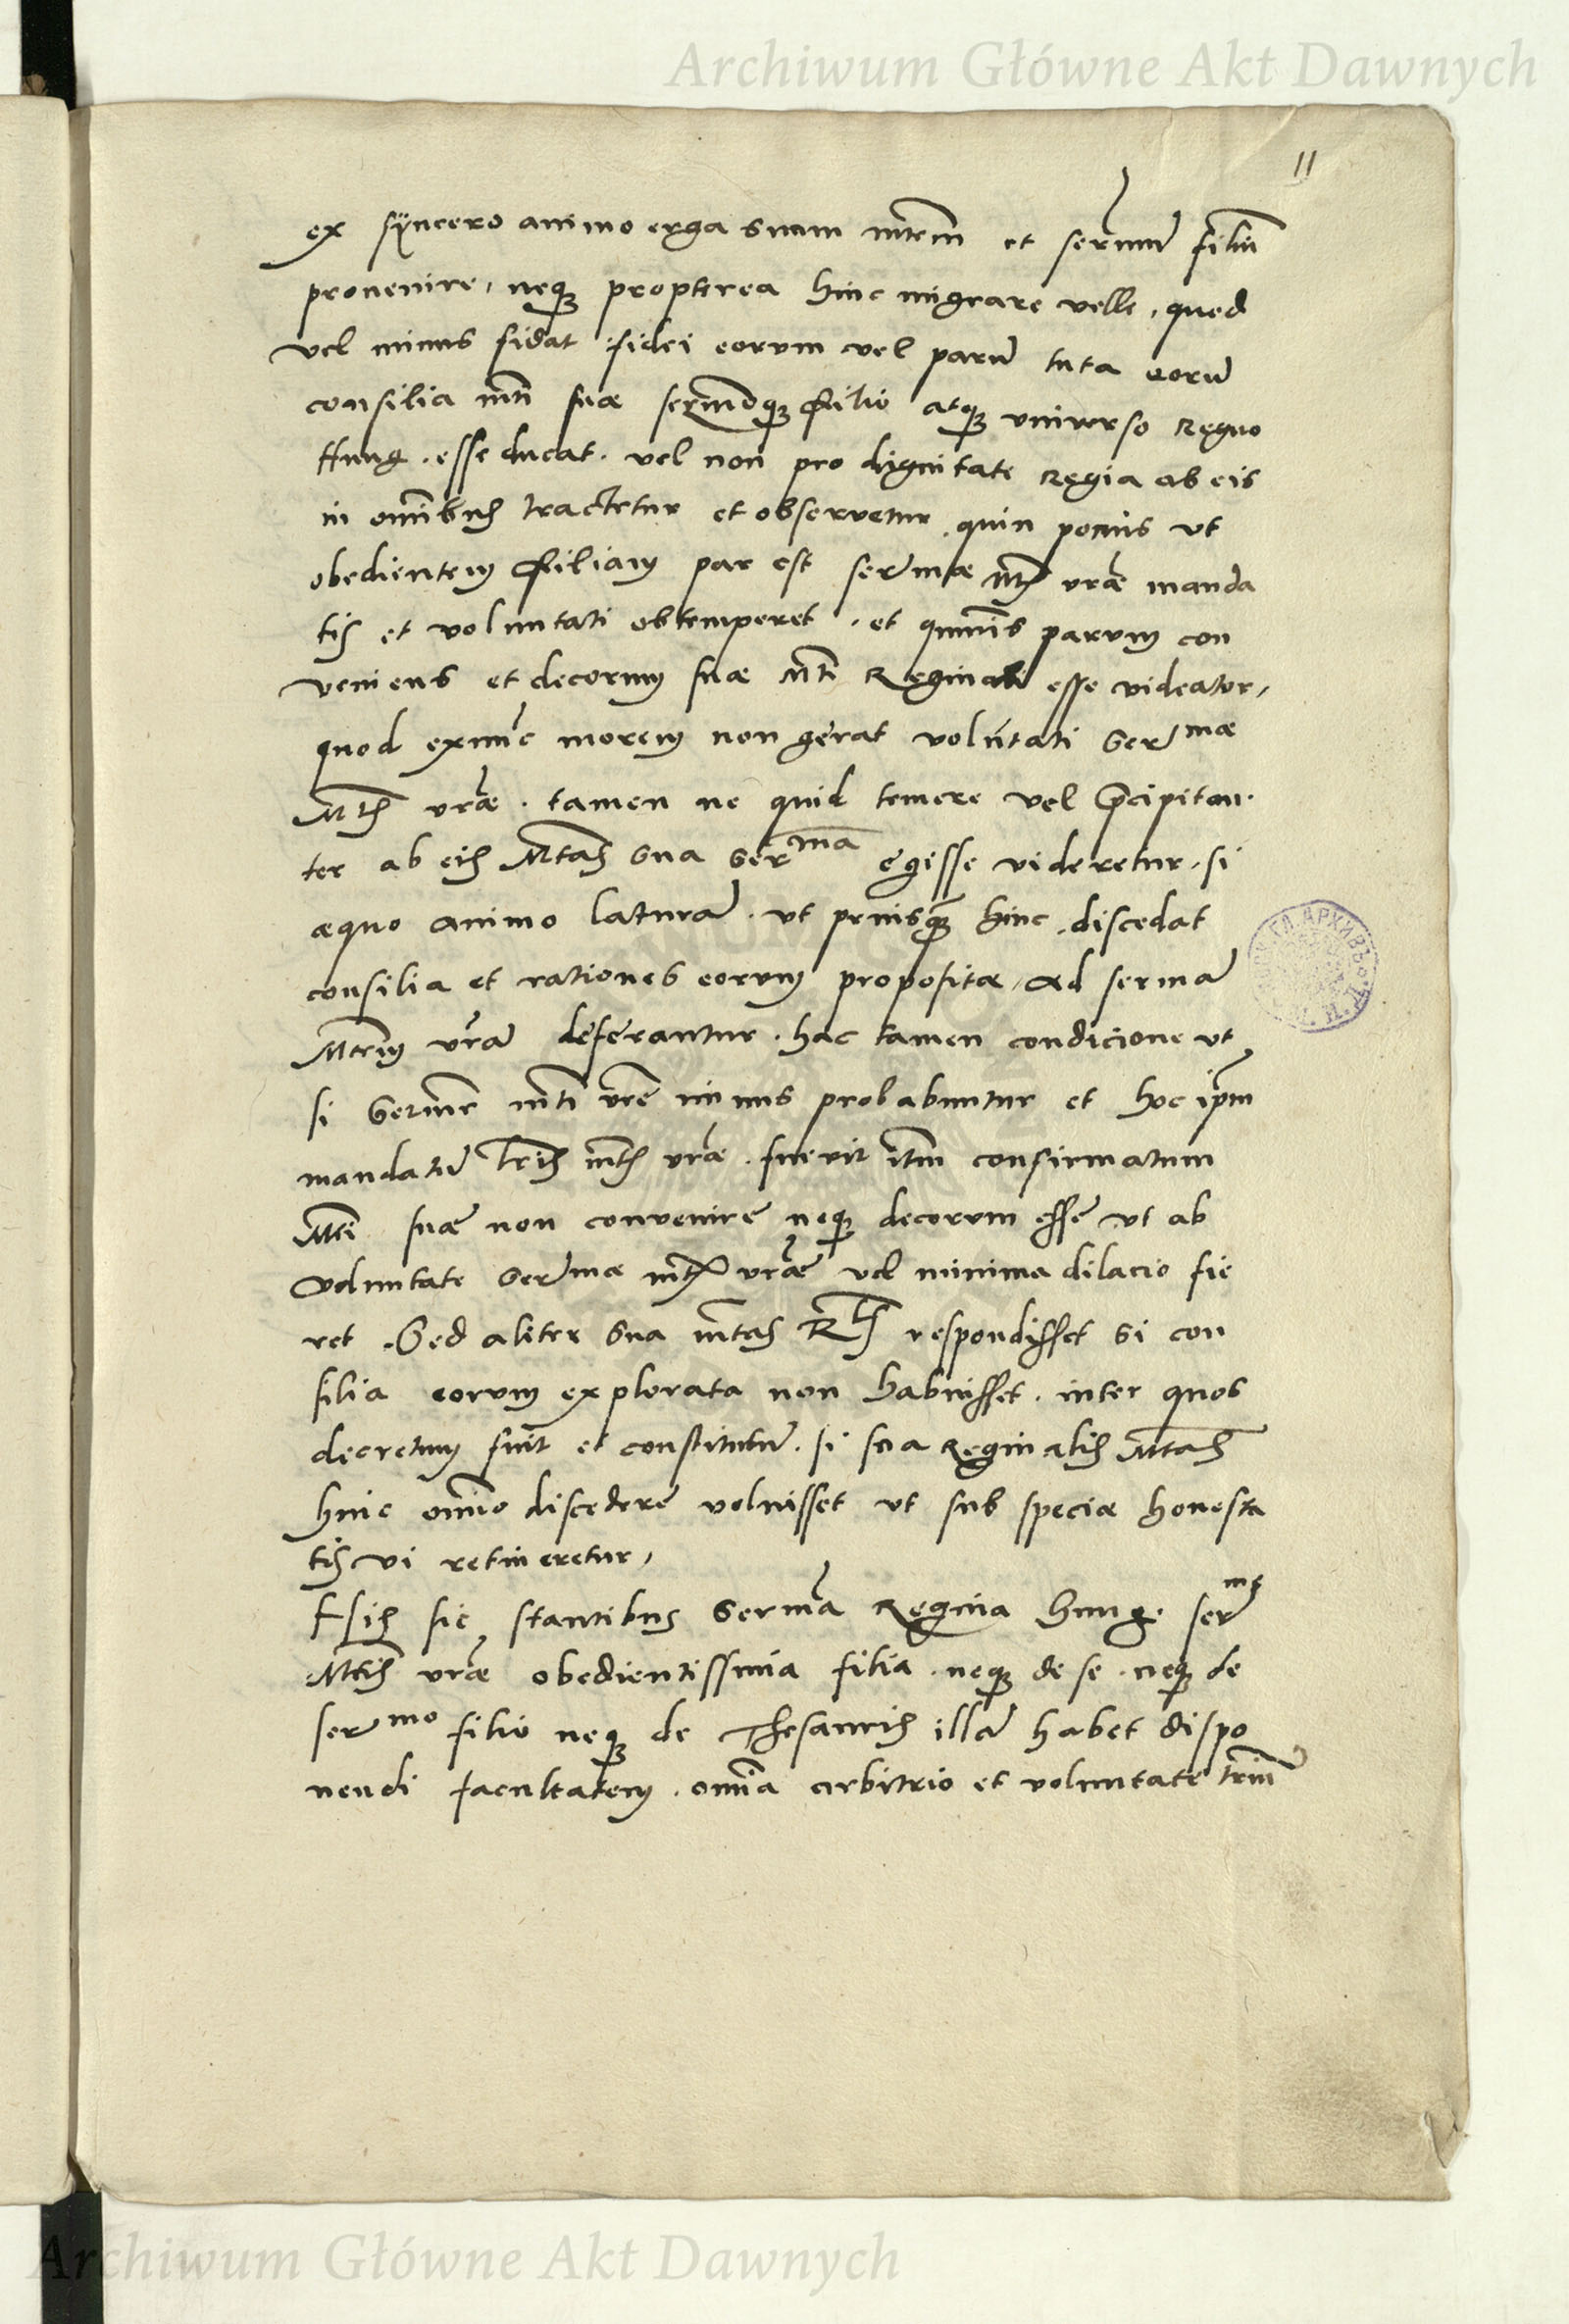 Archiwum Główne Akt Dawnych
11
ex syncero animo erga suam mtem et sermum filiu
provenire, neq propterea hinc migrare velle, quod
vel minus fidat fidei eorum vel paru tuta eoru
consilia mti suæ sermoq filio atq universo Regno
Hung. esse ducat. vel non pro dignitate Regia ab eis
in omnibus tractetur et observetur, quin potius ut
obedientem filiam par est sermæ mtis vræ manda
tis et voluntati obtemperet, et quamvis parum con
veniens et decorum suæ Mti Reginali esse videatur,
quod exnunc morem non gerat voluntati Sermæ
Mtis vræ. tamen ne quid temere vel præcipitan-
ter ab eis Mtas Sua Serma egisse videretur, si
æquo animo latura. ut priusq hinc discedat
consilia et rationes eorum propositæ, ad serma
Mtem vram deferantur. hac tamen condicione ut
si Serme mti vre minus probabuntur et hoc ipm
mandatu lris mtis vræ. fuerit itm confirmatum
Mti suæ non convenire neq decorum esse ut ab
voluntate Sermæ mtis vræ vel minima dilacio fie
ret. Sed aliter Sua mtas Rlis respondisset si con
silia eorum explorata non habuisset. inter quos
decretum fuit et constitutu. si sua Reginalis Mtas
hinc omnino discedere voluisset ut sub speciæ honesta
tis vi retineretur,
His sic stantibus Serma Regina Hung. serme
Mtis vræ obedientissima filia. neq de se. neq de
sermo filio neq de Thesauris illa habet dispo
nendi facultatem. omnia arbitrio et voluntate
Archiwum Główne Akt Dawnych